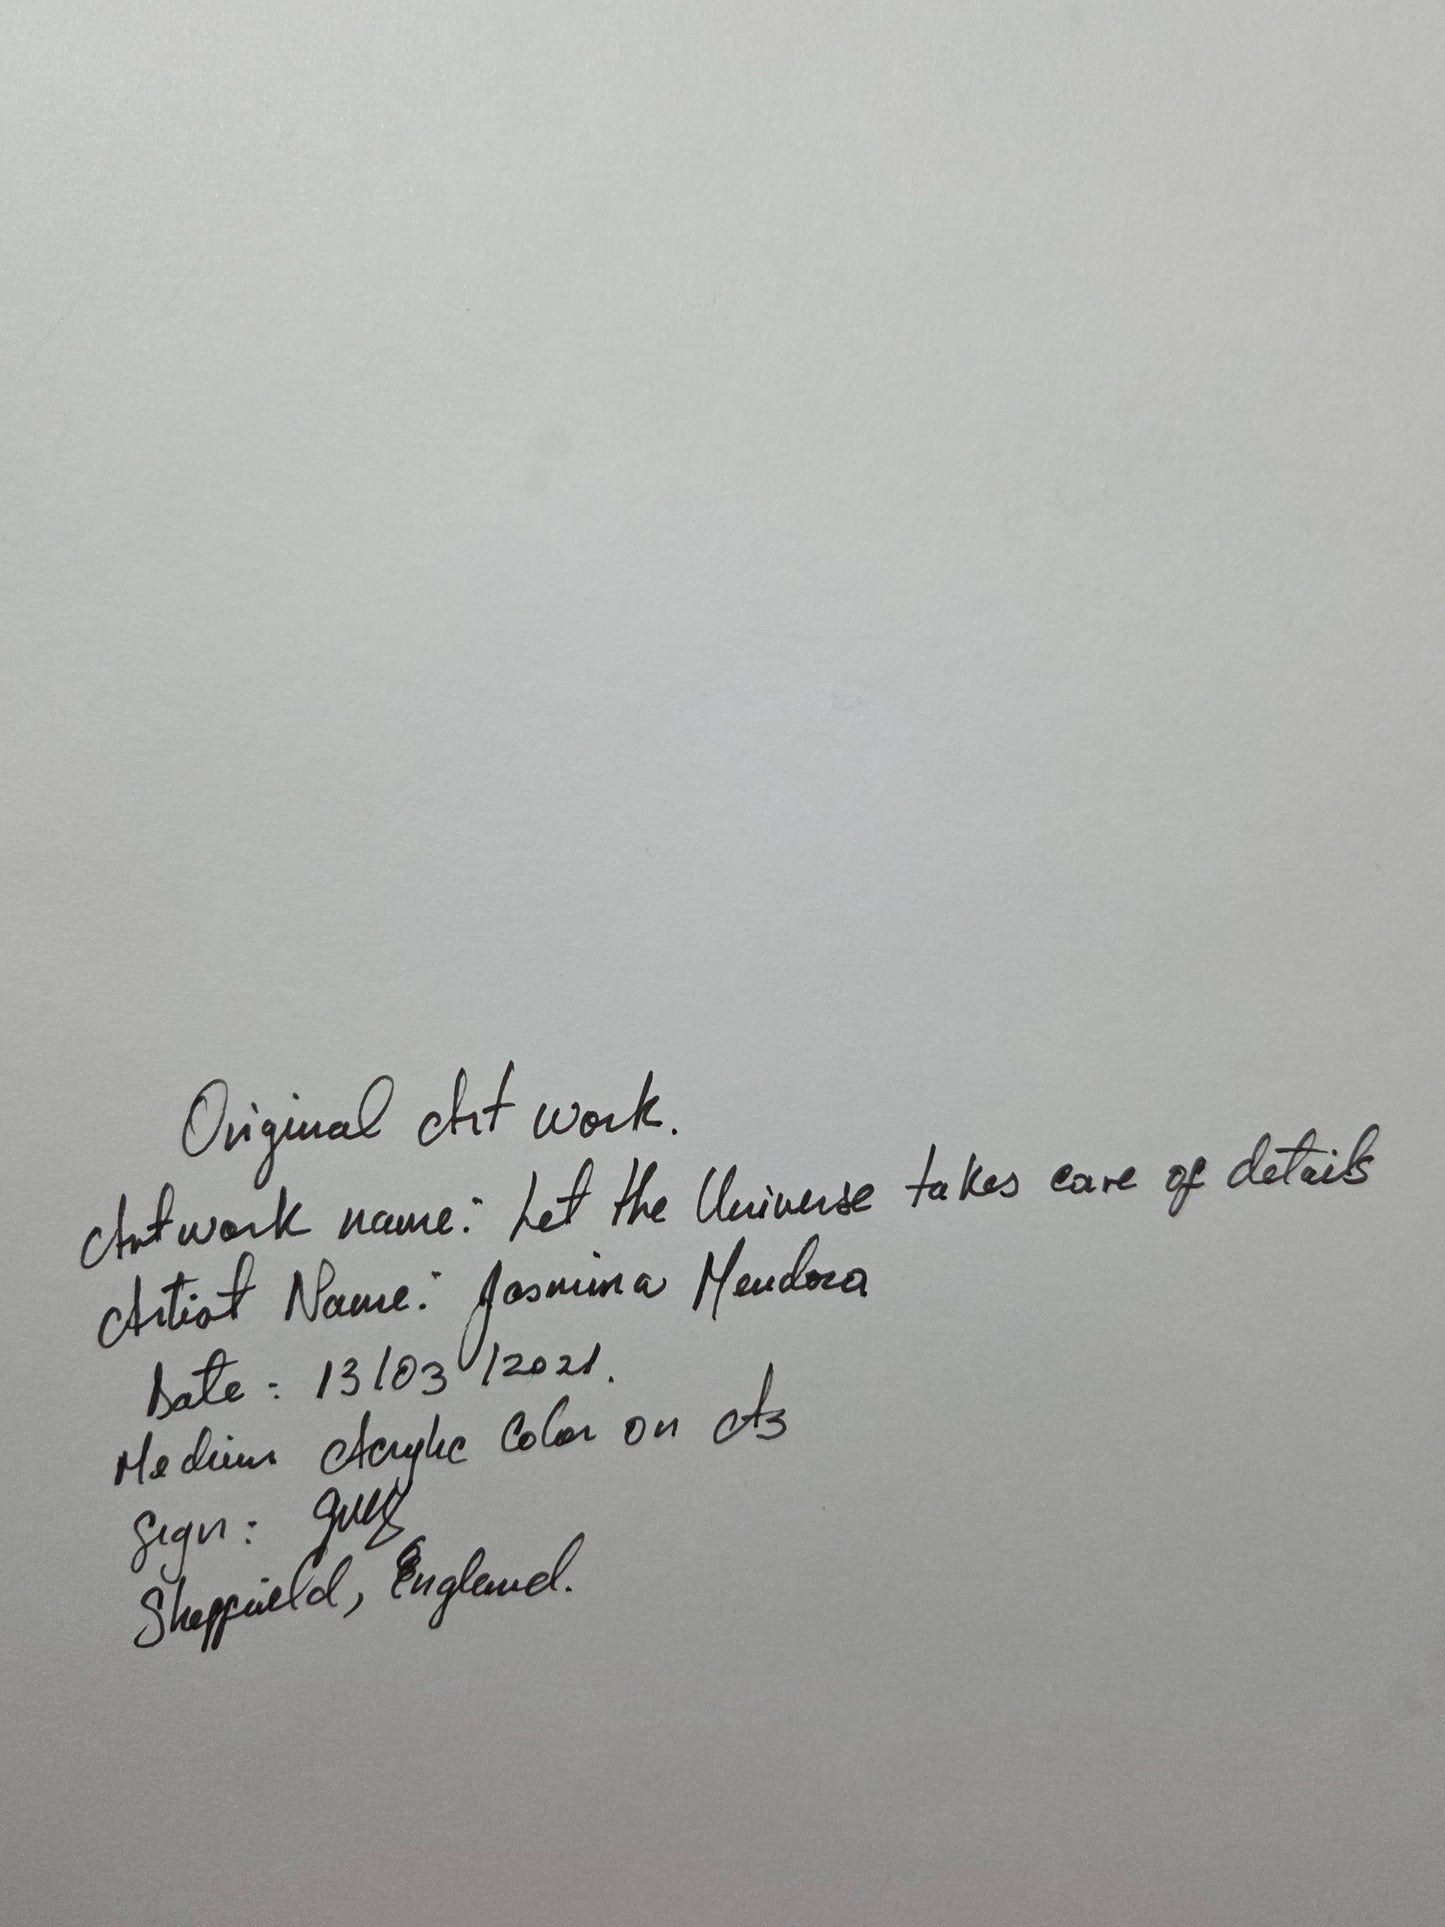 Original Art work.
Artwork name: Let the Universe takes care of details
Artist Name: Jasmina Mendoza
Date: 13/03/2021.
Medium Acrylic Color on A3
Sign:
Sheffield, England.